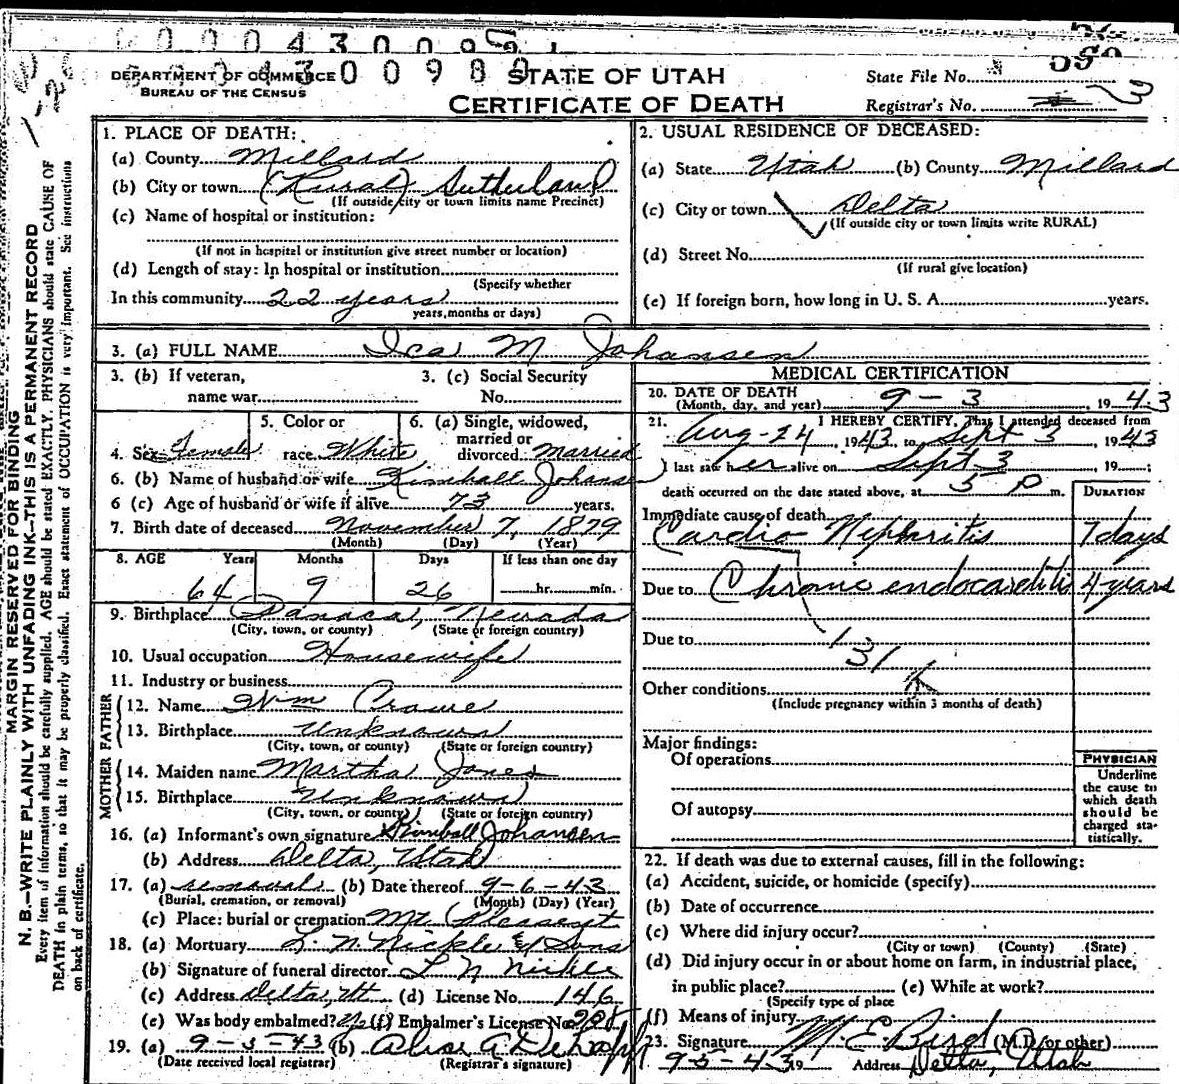 0 0 0 4 3 0 0 9
DEPARTMENT OF COMMERCE
BUREAU OF THE CENSUS
4 3 0 0 9 8 0
STATE OF UTAH
CERTIFICATE OF DEATH
State File No. 59
Registrar's No. 3
MARGIN RESERVED FOR BINDING
N. B.—WRITE PLAINLY WITH UNFADING INK—THIS IS A PERMANENT RECORD
Every item of information should be carefully supplied. AGE should be stated EXACTLY. PHYSICIANS should state CAUSE OF
DEATH in plain terms, so that it may be properly classified. Exact statement of OCCUPATION is very important. See instructions
on back of certificate.
1. PLACE OF DEATH:
(a) County Millard
(b) City or town (Rural) Sutherland
(If outside city or town limits name Precinct)
(c) Name of hospital or institution:
(If not in hospital or institution give street number or location)
(d) Length of stay: In hospital or institution
(Specify whether
In this community 22 years
years, months or days)
2. USUAL RESIDENCE OF DECEASED:
(a) State Utah (b) County Millard
(c) City or town Delta
(If outside city or town limits write RURAL)
(d) Street No.
(If rural give location)
(e) If foreign born, how long in U. S. A. years.
3. (a) FULL NAME Ica M Johansen
3. (b) If veteran, name war
3. (c) Social Security No.
4. Sex Female
5. Color or race White
6. (a) Single, widowed, married or divorced Married
6. (b) Name of husband or wife Kimball Johansen
6 (c) Age of husband or wife if alive 73 years.
7. Birth date of deceased November 7, 1879
(Month) (Day) (Year)
8. AGE Years Months Days If less than one day
64 9 26 hr. min.
9. Birthplace Panaca, Nevada
(City, town, or county) (State or foreign country)
10. Usual occupation Housewife
11. Industry or business
FATHER
12. Name Wm Crowe
13. Birthplace Unknown
(City, town, or county) (State or foreign country)
MOTHER
14. Maiden name Martha Jones
15. Birthplace Unknown
(City, town, or county) (State or foreign country)
16. (a) Informant's own signature Kimball Johansen
(b) Address Delta, Utah
17. (a) removal (b) Date thereof 9-6-43
(Burial, cremation, or removal) (Month) (Day) (Year)
(c) Place: burial or cremation Mt. Pleasant
18. (a) Mortuary L. N. Nickle & Sons
(b) Signature of funeral director L N Nickle
(c) Address Delta, Ut (d) License No. 146
(e) Was body embalmed? (f) Embalmer's License No.
19. (a) 9-5-43 (b) Alice A
(Date received local registrar) (Registrar's signature)
MEDICAL CERTIFICATION
20. DATE OF DEATH
(Month, day, and year) 9 - 3, 1943
21. I HEREBY CERTIFY, That I attended deceased from
Aug-24, 1943, to Sept 3, 1943
I last saw her alive on Sept 3, 19 ;
death occurred on the date stated above, at 5 P m.
DURATION
Immediate cause of death
Cardio Nephritis 7 days
Due to Chronic endocarditis 4 years
Due to
131
Other conditions
(Include pregnancy within 3 months of death)
Major findings:
Of operations
Of autopsy
PHYSICIAN
Underline
the cause to
which death
should be
charged sta-
tistically.
22. If death was due to external causes, fill in the following:
(a) Accident, suicide, or homicide (specify)
(b) Date of occurrence
(c) Where did injury occur?
(City or town) (County) (State)
(d) Did injury occur in or about home on farm, in industrial place,
in public place? (e) While at work?
(Specify type of place
(f) Means of injury
23. Signature M. E. Bird (M.D. or other)
9-5-43 19 Address Delta, Utah